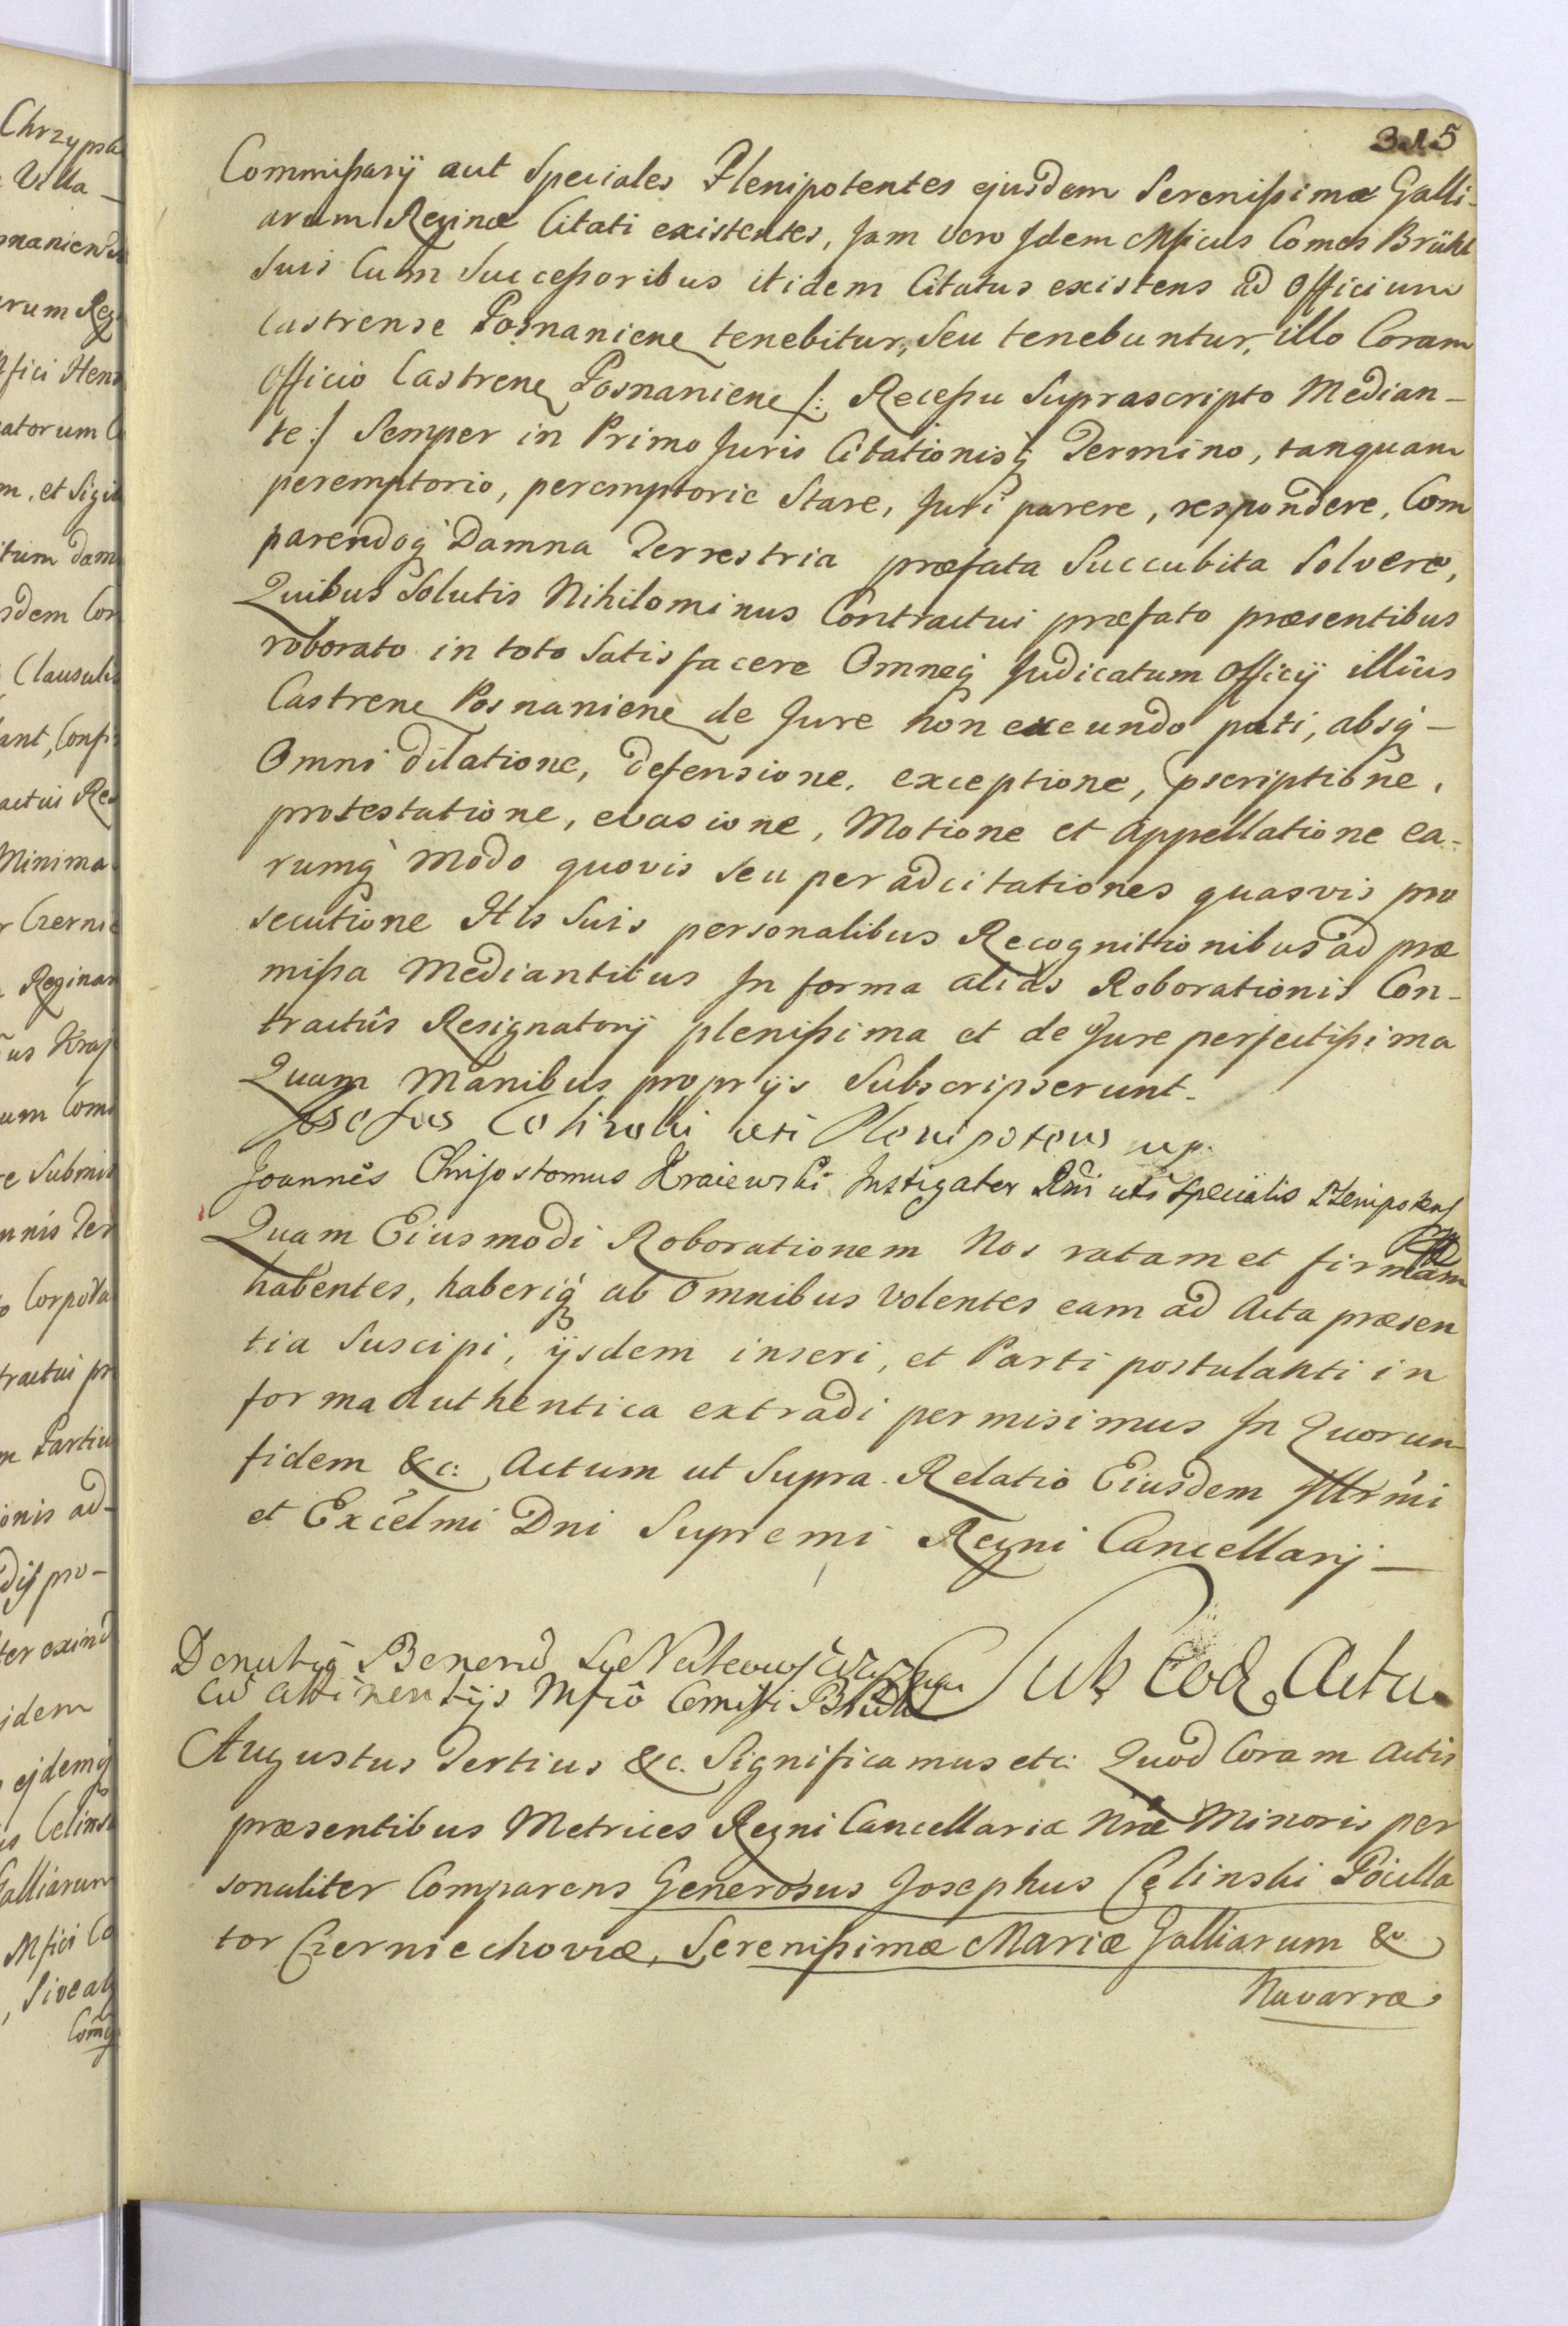 315
Commissarij aut Speciales Plenipotentes ejusdem Serenissimæ Galli-
arum Reginæ Citati existentes, Jam vero Jdem Mficus Comes Brühl
Suis Cum Successoribus itidem Citatus existens ad Officium
Castrense Posnaniene tenebitur, Seu tenebuntur, illo Coram
Officio Castrene Posnaniene /: Recessu Suprascripto Median-
te :/ Semper in Primo Juris Citationisq Termino, tanquam
peremptorio, peremptorie Stare, Juri parere, respondere, Com
parendoq Damna Terrestria præfata Succubita Solvere,
Quibus Solutis Nihilominus Contractui præfato præsentibus
roborato in toto Satisfacere Omneq Judicatum Officij illius
Castrene Posnaniene de Jure non exeundo pati, absq -
Omni dilatione, defensione, exceptione, pscriptione,
protestatione, evasione, Motione et Appellatione ea-
rumq modo quovis Seu per adcitationes quasvis pro
secutione His Suis personalibus Recognitionibus ad præ
missa Mediantibus Jn forma alias Roborationis Con-
tractûs Resignatorij plenissima et de Jure perfectissima
Quam Manibus proprijs Subscripserunt.
Josefus Celinski uti Plenipotens mp.
Joannes Chrisostomus Kraiewski Jnstigator Rni uti Specialis Plenipotens
Quam Eiusmodi Roborationem Nos ratam et firmam
habentes, haberiq ab Omnibus Volentes eam ad Acta præsen
tia Suscipi, ijsdem inseri, et Parti postulanti in
forma Authentica extradi permisimus Jn Quorum
fidem &c: Actum ut Supra. Relatio Eiusdem Jllrmi
et Excelmi Dni Supremi Regni Cancellarij -
Sub Eod Actu
cũ Attinentijs Mfico Comiti Brühl
Augustus Tertius &c. Significamus etc: Quod Coram Actis
præsentibus Metrices Regni Cancellariæ Nræ Minoris per
sonaliter Comparens Generosus Josephus Celinski Pocilla
tor Czerniechoviæ, Serenissimæ Mariæ Galliarum &
Navarræ